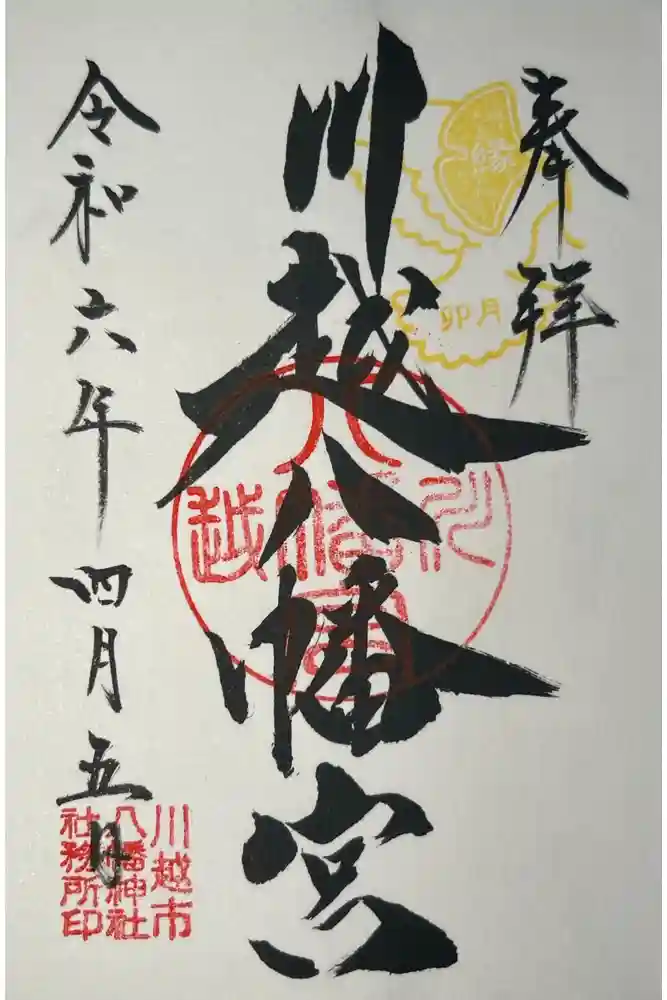 奉拝
卯月
川越八幡宮
川越
八幡
宮
令和六年四月五日
川越市
八幡神社
社務所印